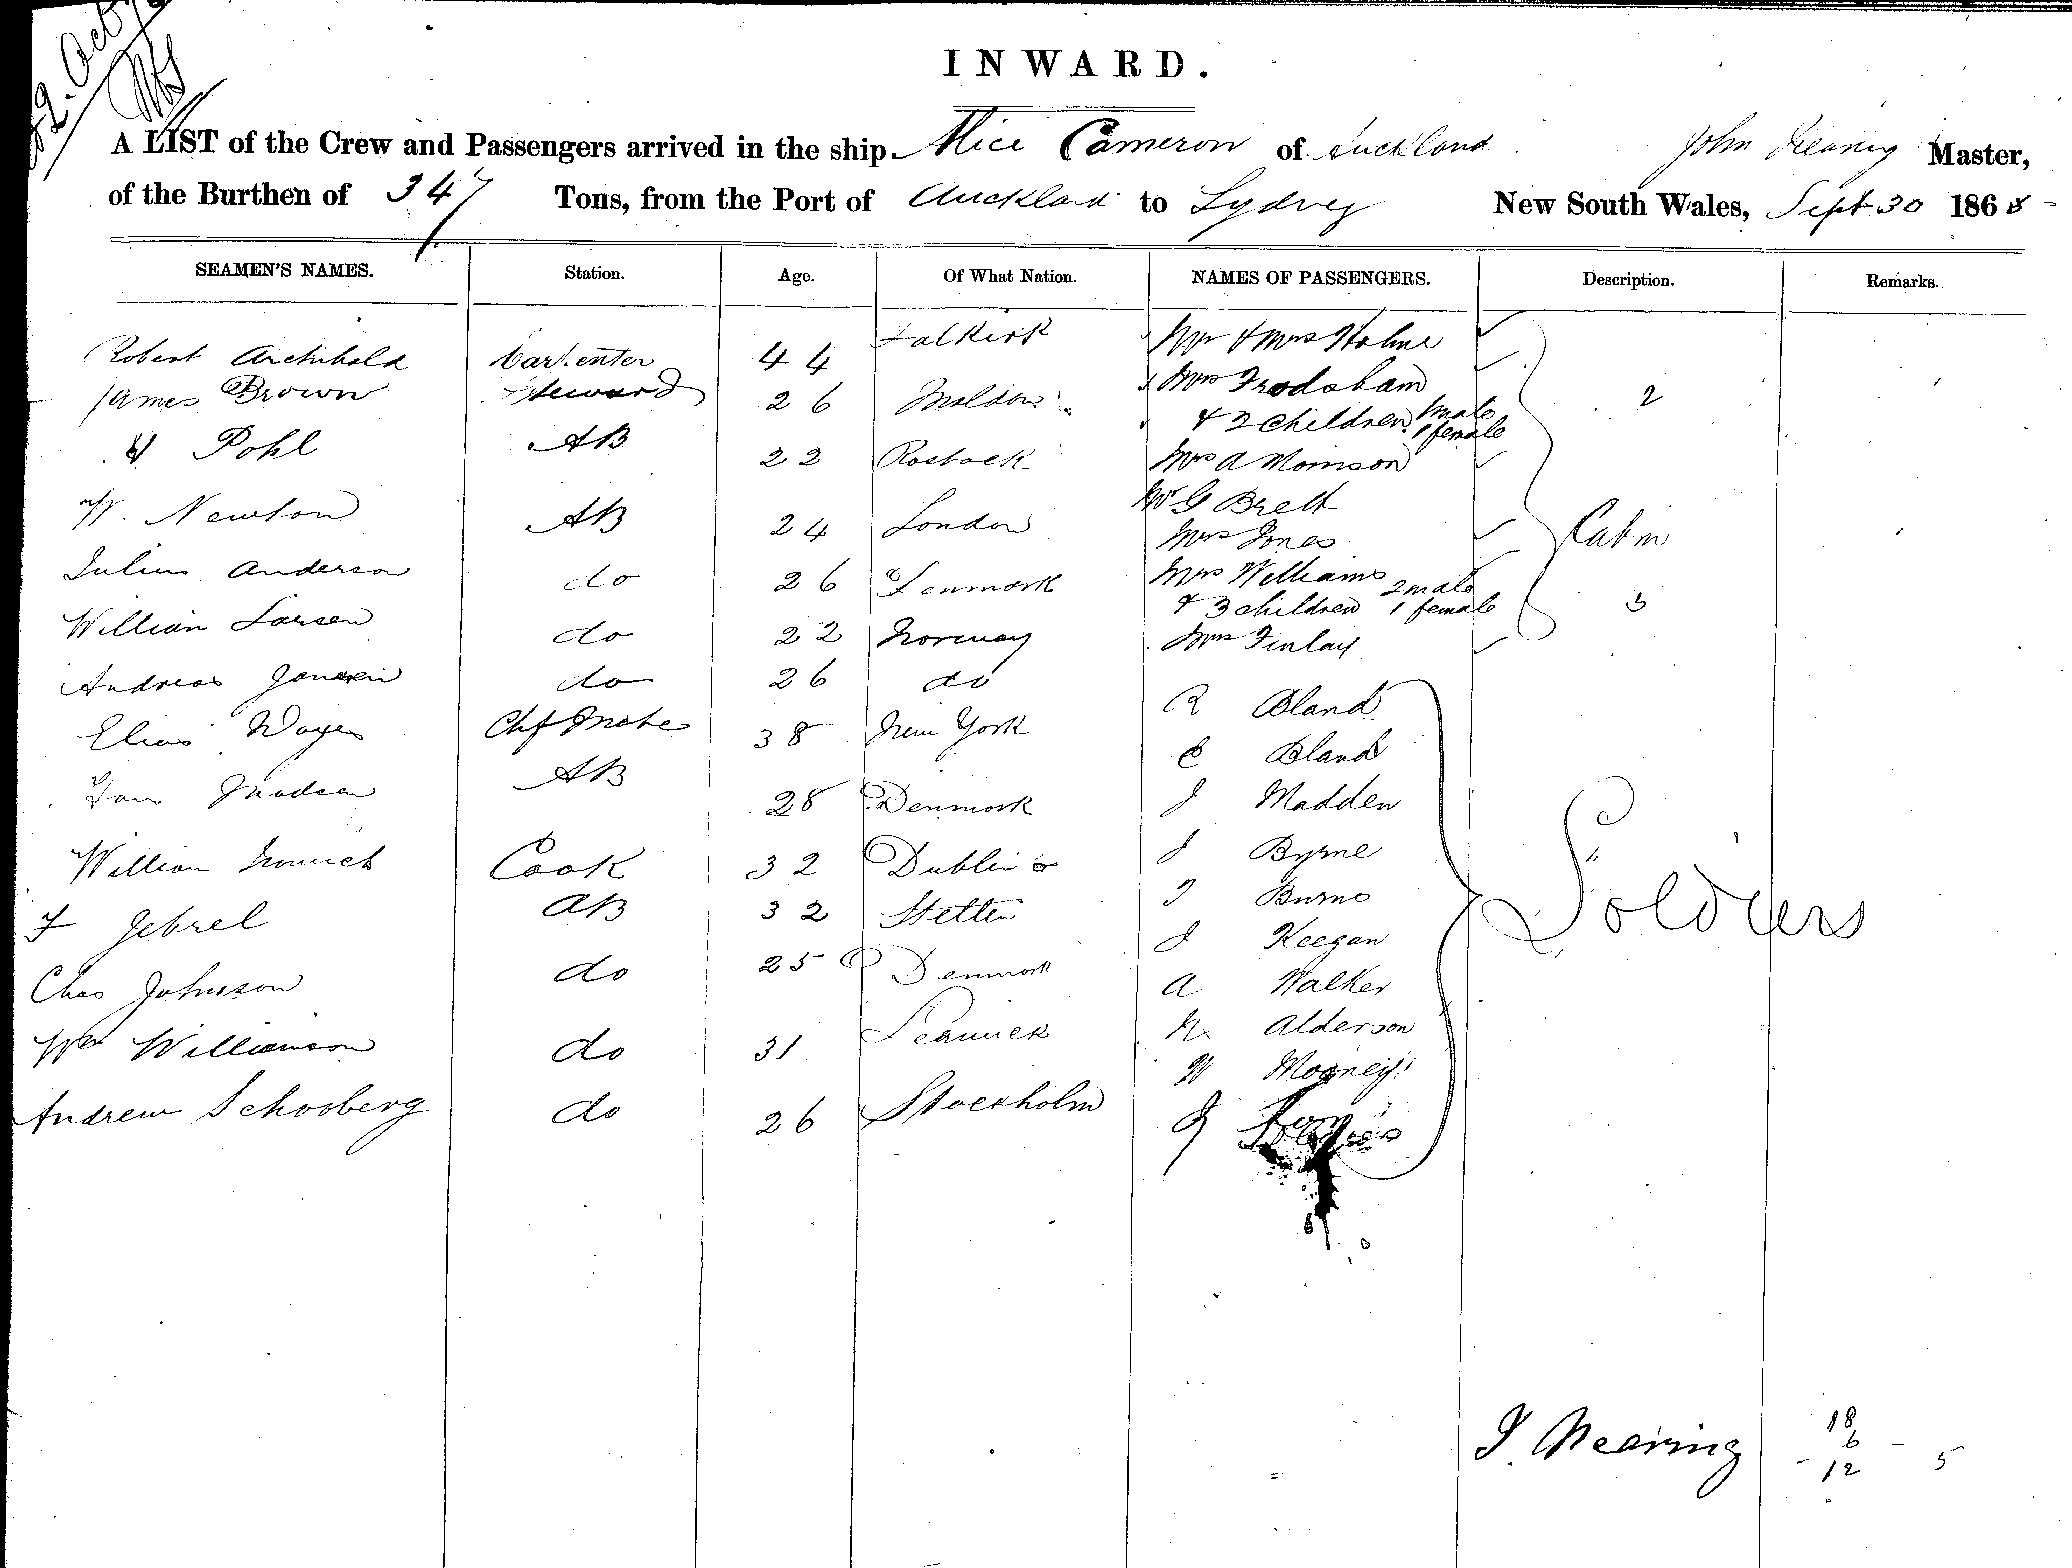 INWARD.
A LIST of the Crew and Passengers arrived in the ship Alice Cameron of Auckland John Nearing Master,
of the Burthen of 347 Tons, from the Port of Auckland to Sydney New South Wales, Sept 30 1868
SEAMEN'S NAMES. Station. Age. Of What Nation. NAMES OF PASSENGERS. Description. Remarks.
Robert Archibald Carpenter 44 Falkirk Mr & Mrs Holme
James Brown Steward 26 Maldon Mrs Frodsham
& 2 children 1 male 1 female 2
Pohl AB 22 Rostock Mrs A Morrison
W. Newton AB 24 London Mr G Brett
Mrs Jones Cabin
Julius Anderson do 26 Denmark Mrs Williams
& 3 children 2 male 1 female 3
William Larsen do 22 Norway Mrs Finlay
Andreas Jansen do 26 do R Bland
Elias Chf Mate 38 New York C Bland
Madsen AB 28 Denmark J Madden
William Cook 32 Dublin J Byrne
F Jebrel AB 32 Stettin T Burns
J Keegan Soldiers
Chas Johnson do 25 Denmark A Walker
Wm Williamson do 31 N Alderson
W Mooney
Andrew Schosberg do 26 Stockholm J
J. Nearing
18
6
12 5